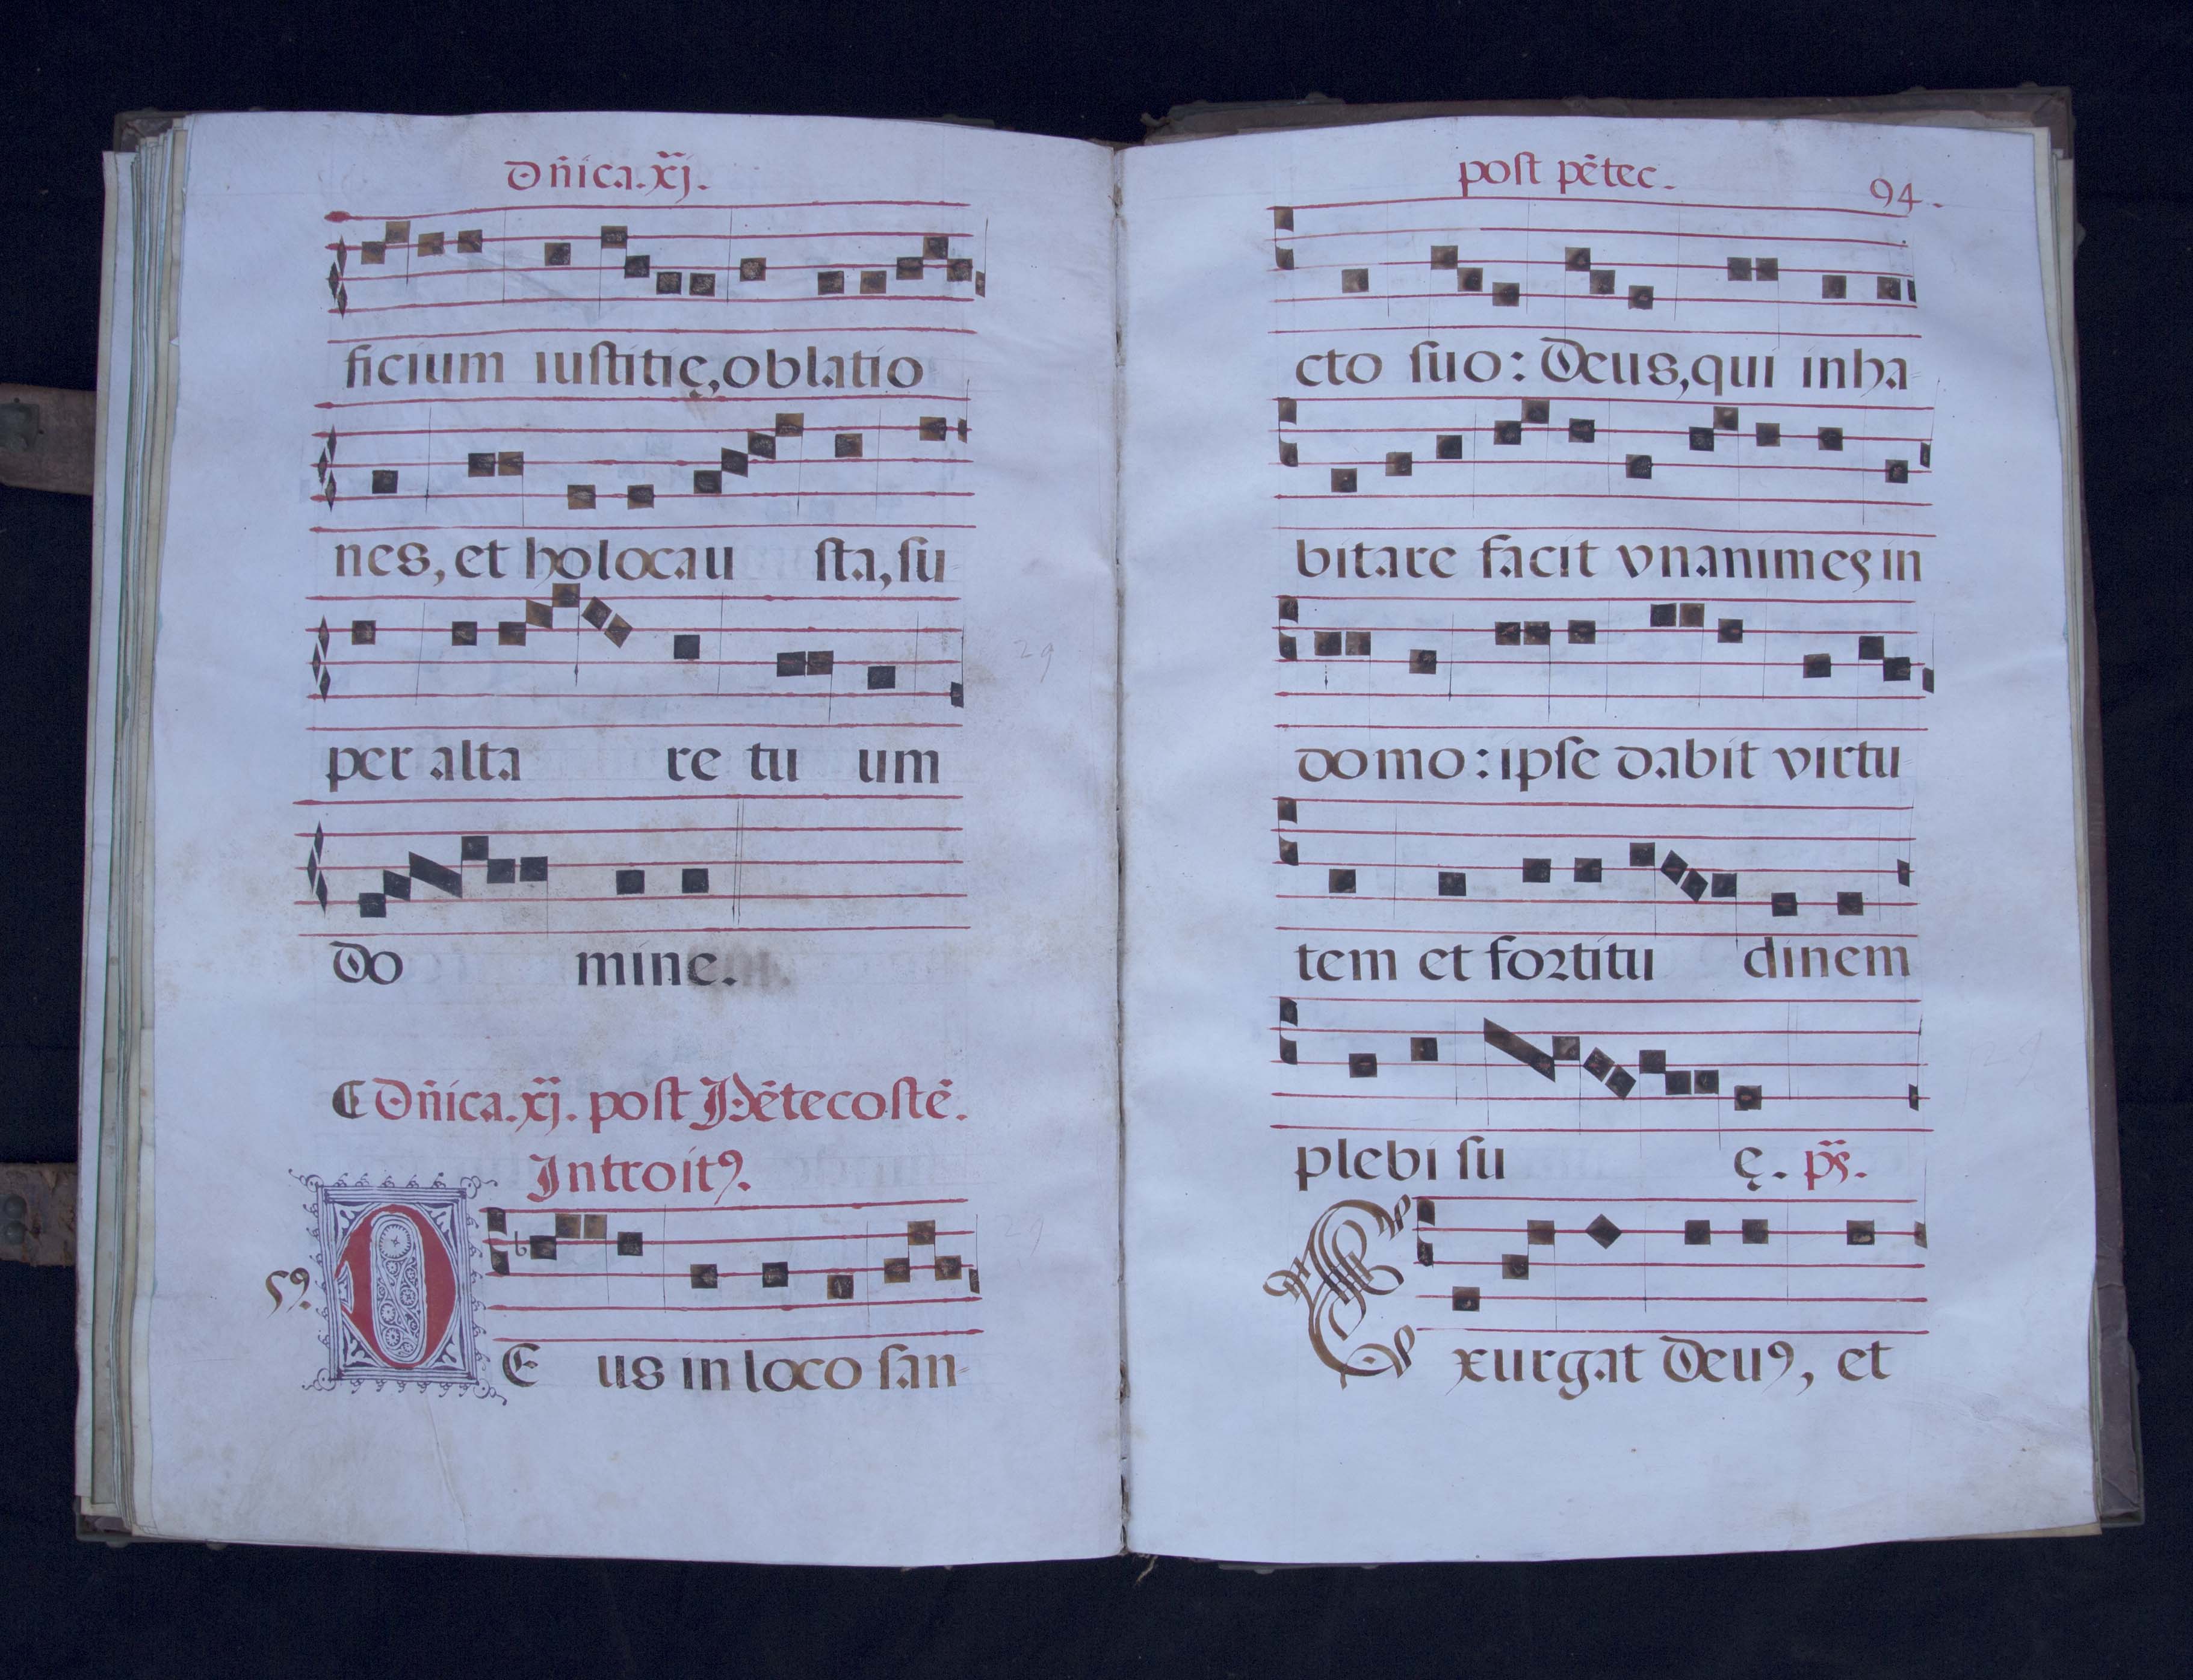 Dn̄ica.xj.
ficium iuſtitię, oblatio
nes, et holocau ſta, ſu
per alta re tu um
Do mine.
Dn̄ica.xj. poſt Pētecoſtē.
Introitꝰ.
D E us in loco ſan-
poſt pētec.
94.
cto ſuo: Deus, qui inha-
bitare facit vnanimes in
domo: ipſe dabit virtu
tem et foꝛtitu dinem
plebi ſu ę. ps̄.
Exurgat Deuꝰ, et